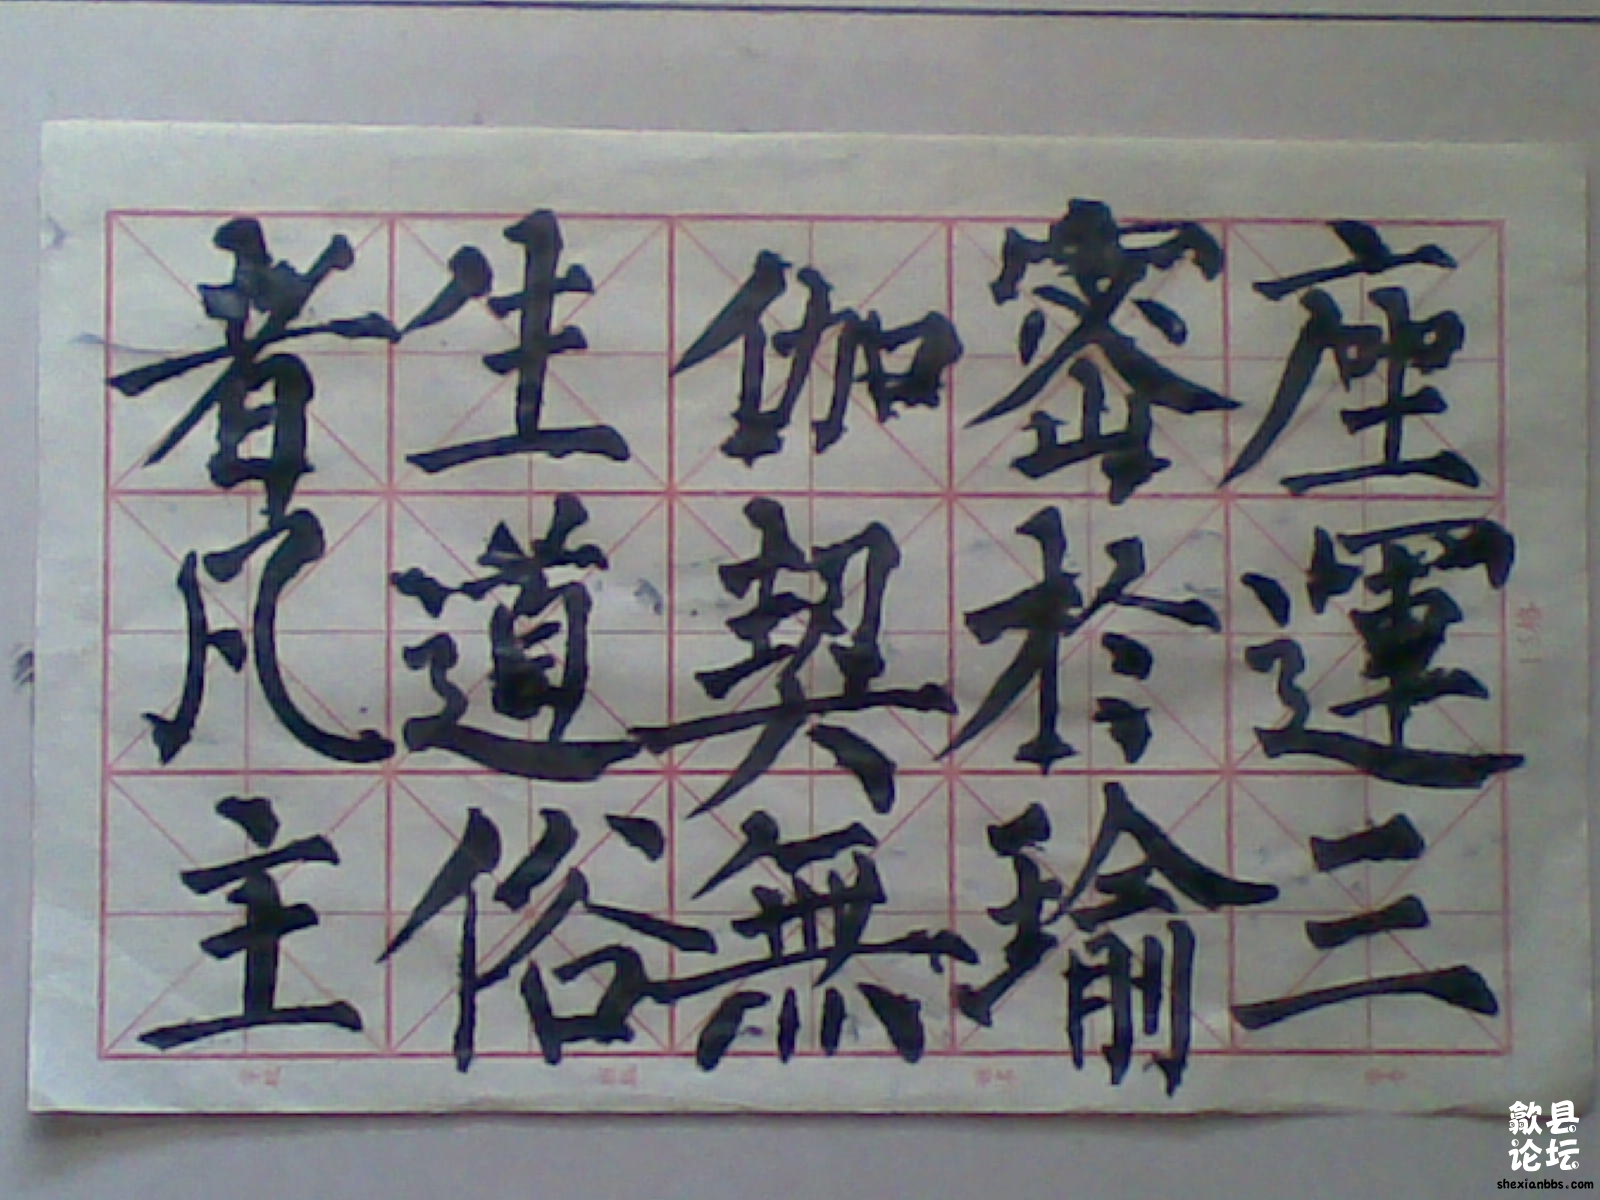 座運三
密於瑜
伽契無
生道俗
者凡主
歙县
论坛
shexianbbs.com